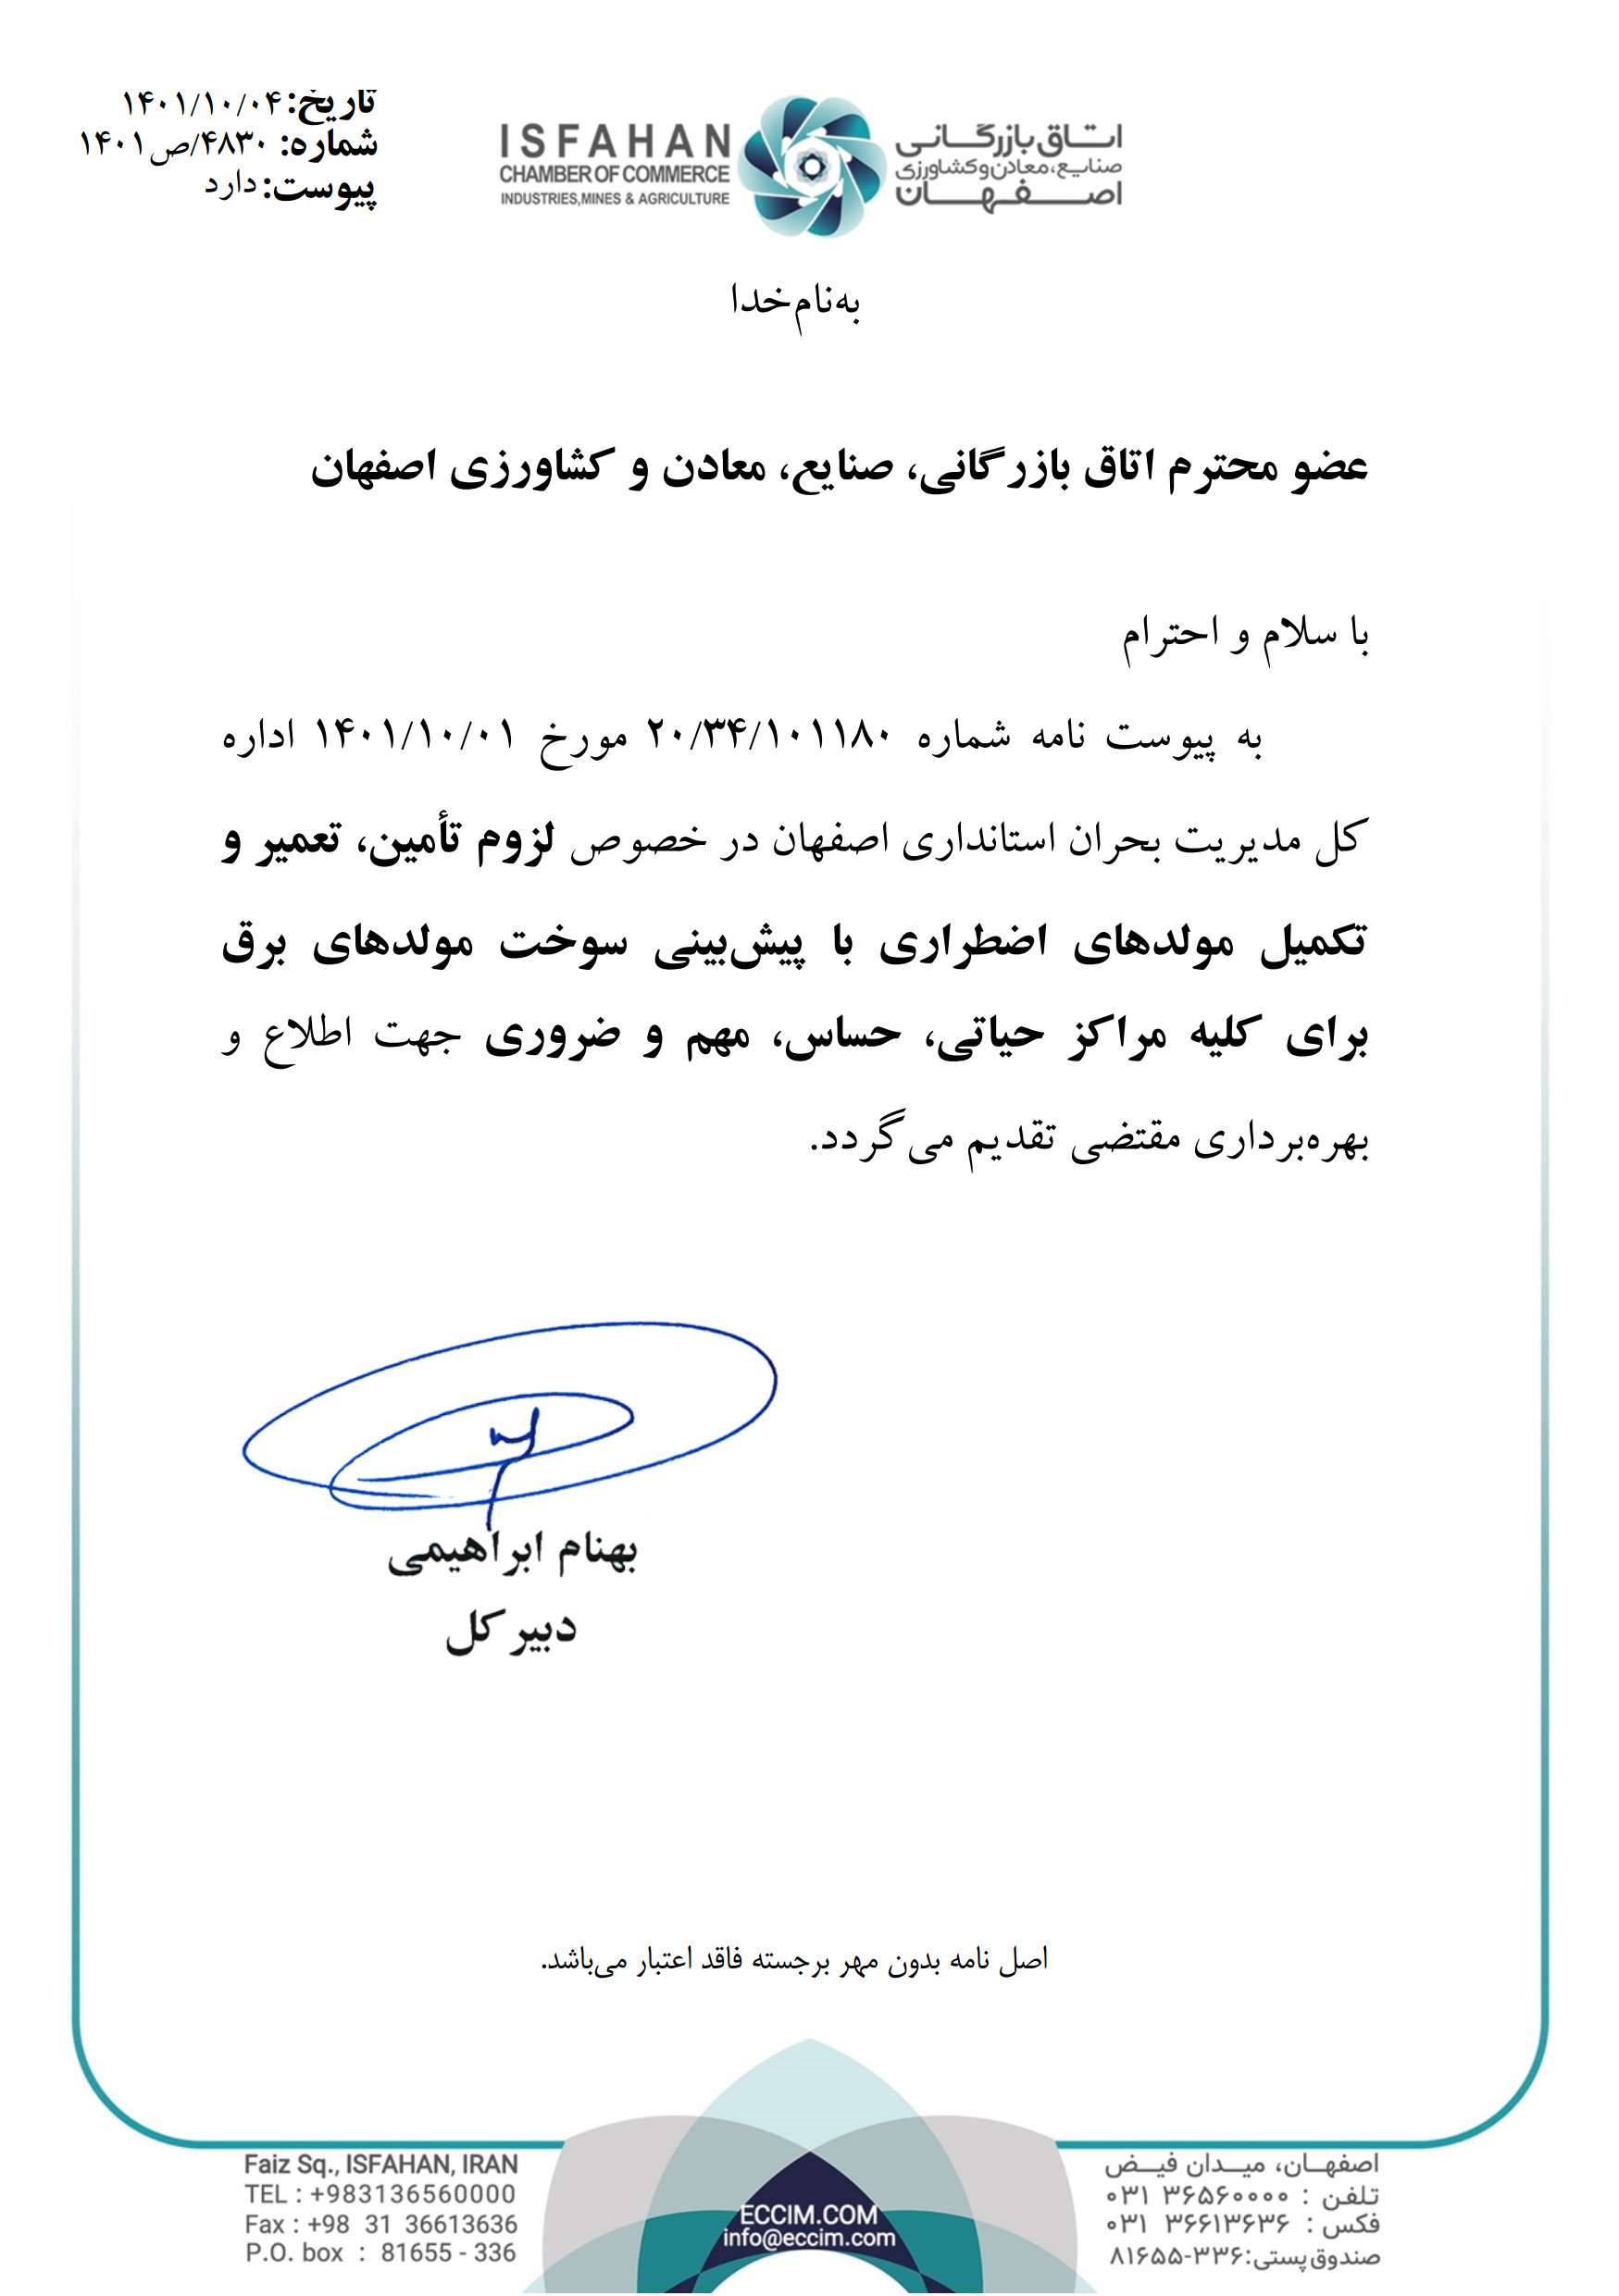 تاریخ: ۱۴۰۱/۱۰/۰۴
شماره: ۴۸۳۰/ص۱۴۰۱
پیوست: دارد
ISFAHAN
CHAMBER OF COMMERCE
INDUSTRIES,MINES & AGRICULTURE
اتاق بازرگانی
صنایع، معادن و کشاورزی
اصفهان
به‌نام‌خدا
عضو محترم اتاق بازرگانی، صنایع، معادن و کشاورزی اصفهان
با سلام و احترام
به پیوست نامه شماره ۲۰/۳۴/۱۰۱۱۸۰ مورخ ۱۴۰۱/۱۰/۰۱ اداره
کل مدیریت بحران استانداری اصفهان در خصوص لزوم تأمین، تعمیر و
تکمیل مولدهای اضطراری با پیش‌بینی سوخت مولدهای برق
برای کلیه مراکز حیاتی، حساس، مهم و ضروری جهت اطلاع و
بهره‌برداری مقتضی تقدیم می‌گردد.
بهنام ابراهیمی
دبیر کل
اصل نامه بدون مهر برجسته فاقد اعتبار می‌باشد.
اصفهان، میدان فیض
تلفن : ۳۶۵۶۰۰۰۰ ۰۳۱
فکس : ۳۶۶۱۳۶۳۶ ۰۳۱
صندوق پستی: ۳۳۶-۸۱۶۵۵
ECCIM.COM
info@eccim.com
Faiz Sq., ISFAHAN, IRAN
TEL : +983136560000
Fax : +98 31 36613636
P.O. box : 81655 - 336